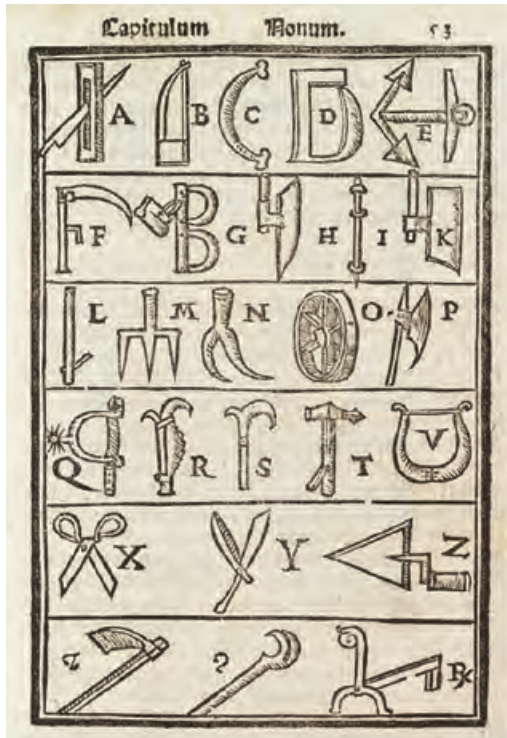 Capitulum Nonum. 53
A B C D E
F G H I K
L M N O P
Q R S T V
X Y Z
⁊ ꝯ ℞